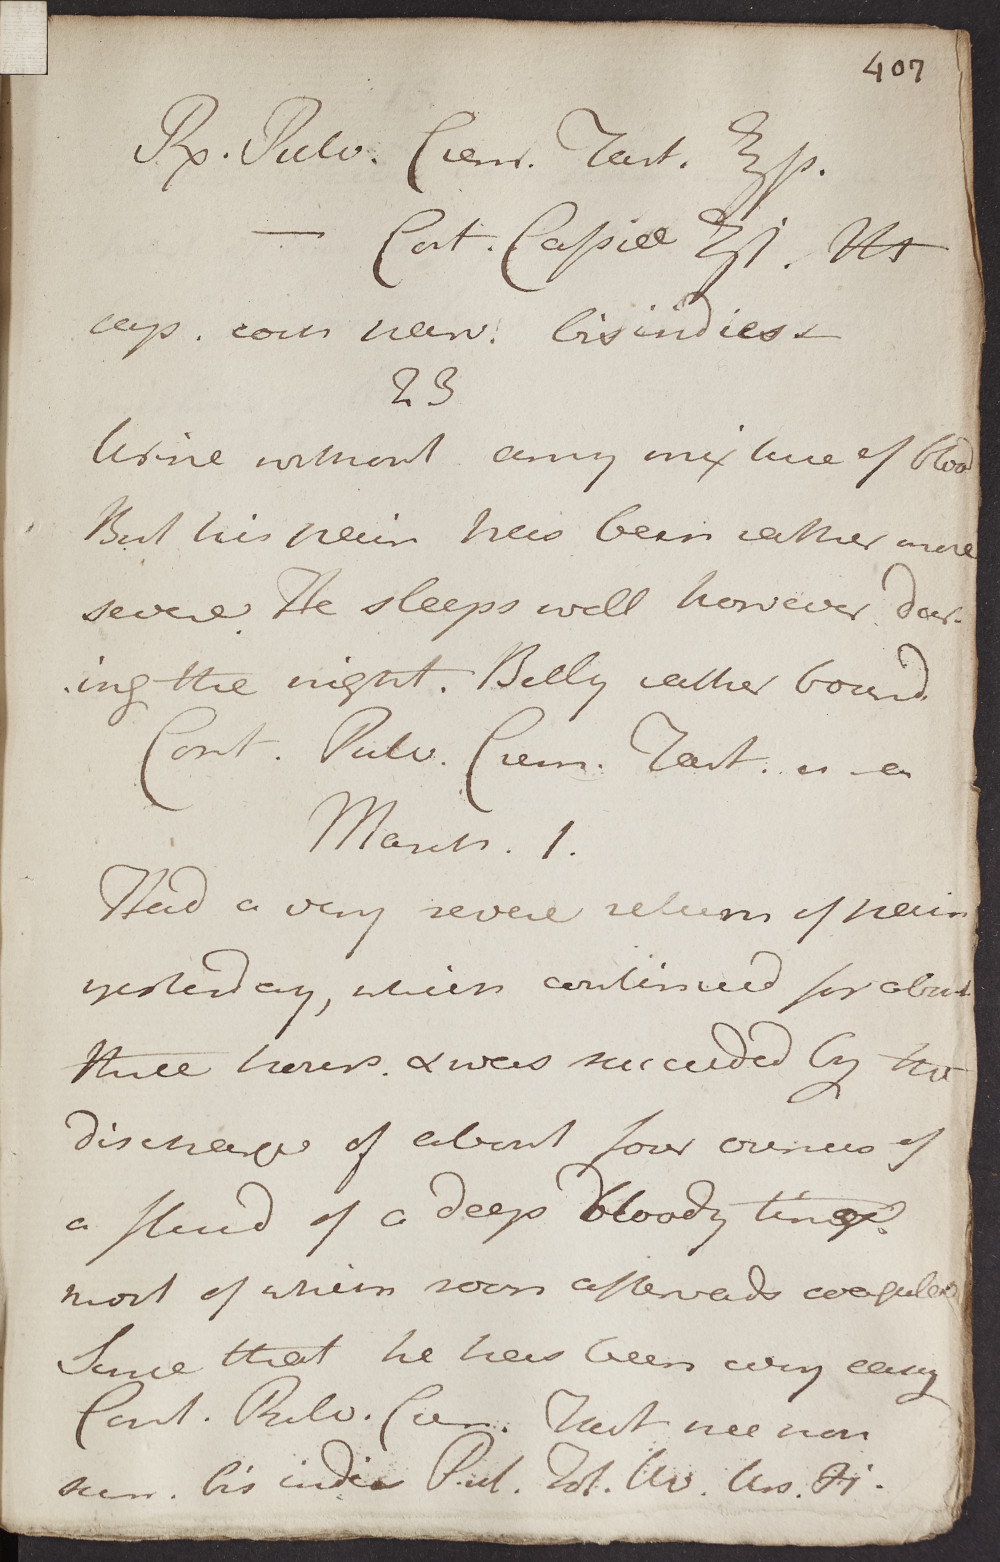 407
Rx. Pulv. Crem. Tart. ℥ß.
— Cort. Cassiæ ʒj. M
cap. coch parv. bis indies
23
Urine without any mixture of blood
But his pain has been rather more
severe. He sleeps well however dur-
ing the night. Belly rather bound
Cont. Pulv. Crem. Tart.
March. 1.
Had a very severe return of pain
yesterday, which continued for about
three hours. & was succeeded by the
discharge of about four ounces of
a fluid of a deep bloody tinge.
most of which soon afterwards coagulated
Since that he has been very easy
Cont. Pulv. Crem. Tart nec non
sum. bis indies Pul. Fol. Uv. Urs. ℈i.